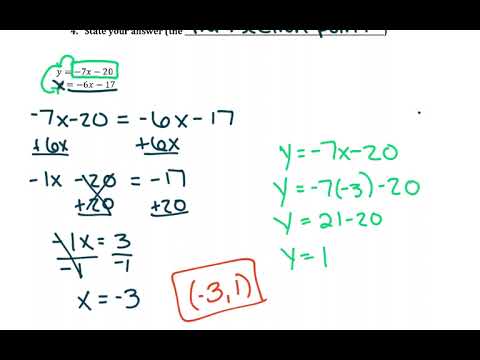 4. State your answer (the
y = -7x - 20
x = -6x - 17
-7x-20 = -6x-17
+6x +6x
-1x -20 = -17
+20 +20
-1x = 3
-1 -1
x = -3
(-3,1)
y = -7x-20
y = -7(-3)-20
y = 21-20
y = 1